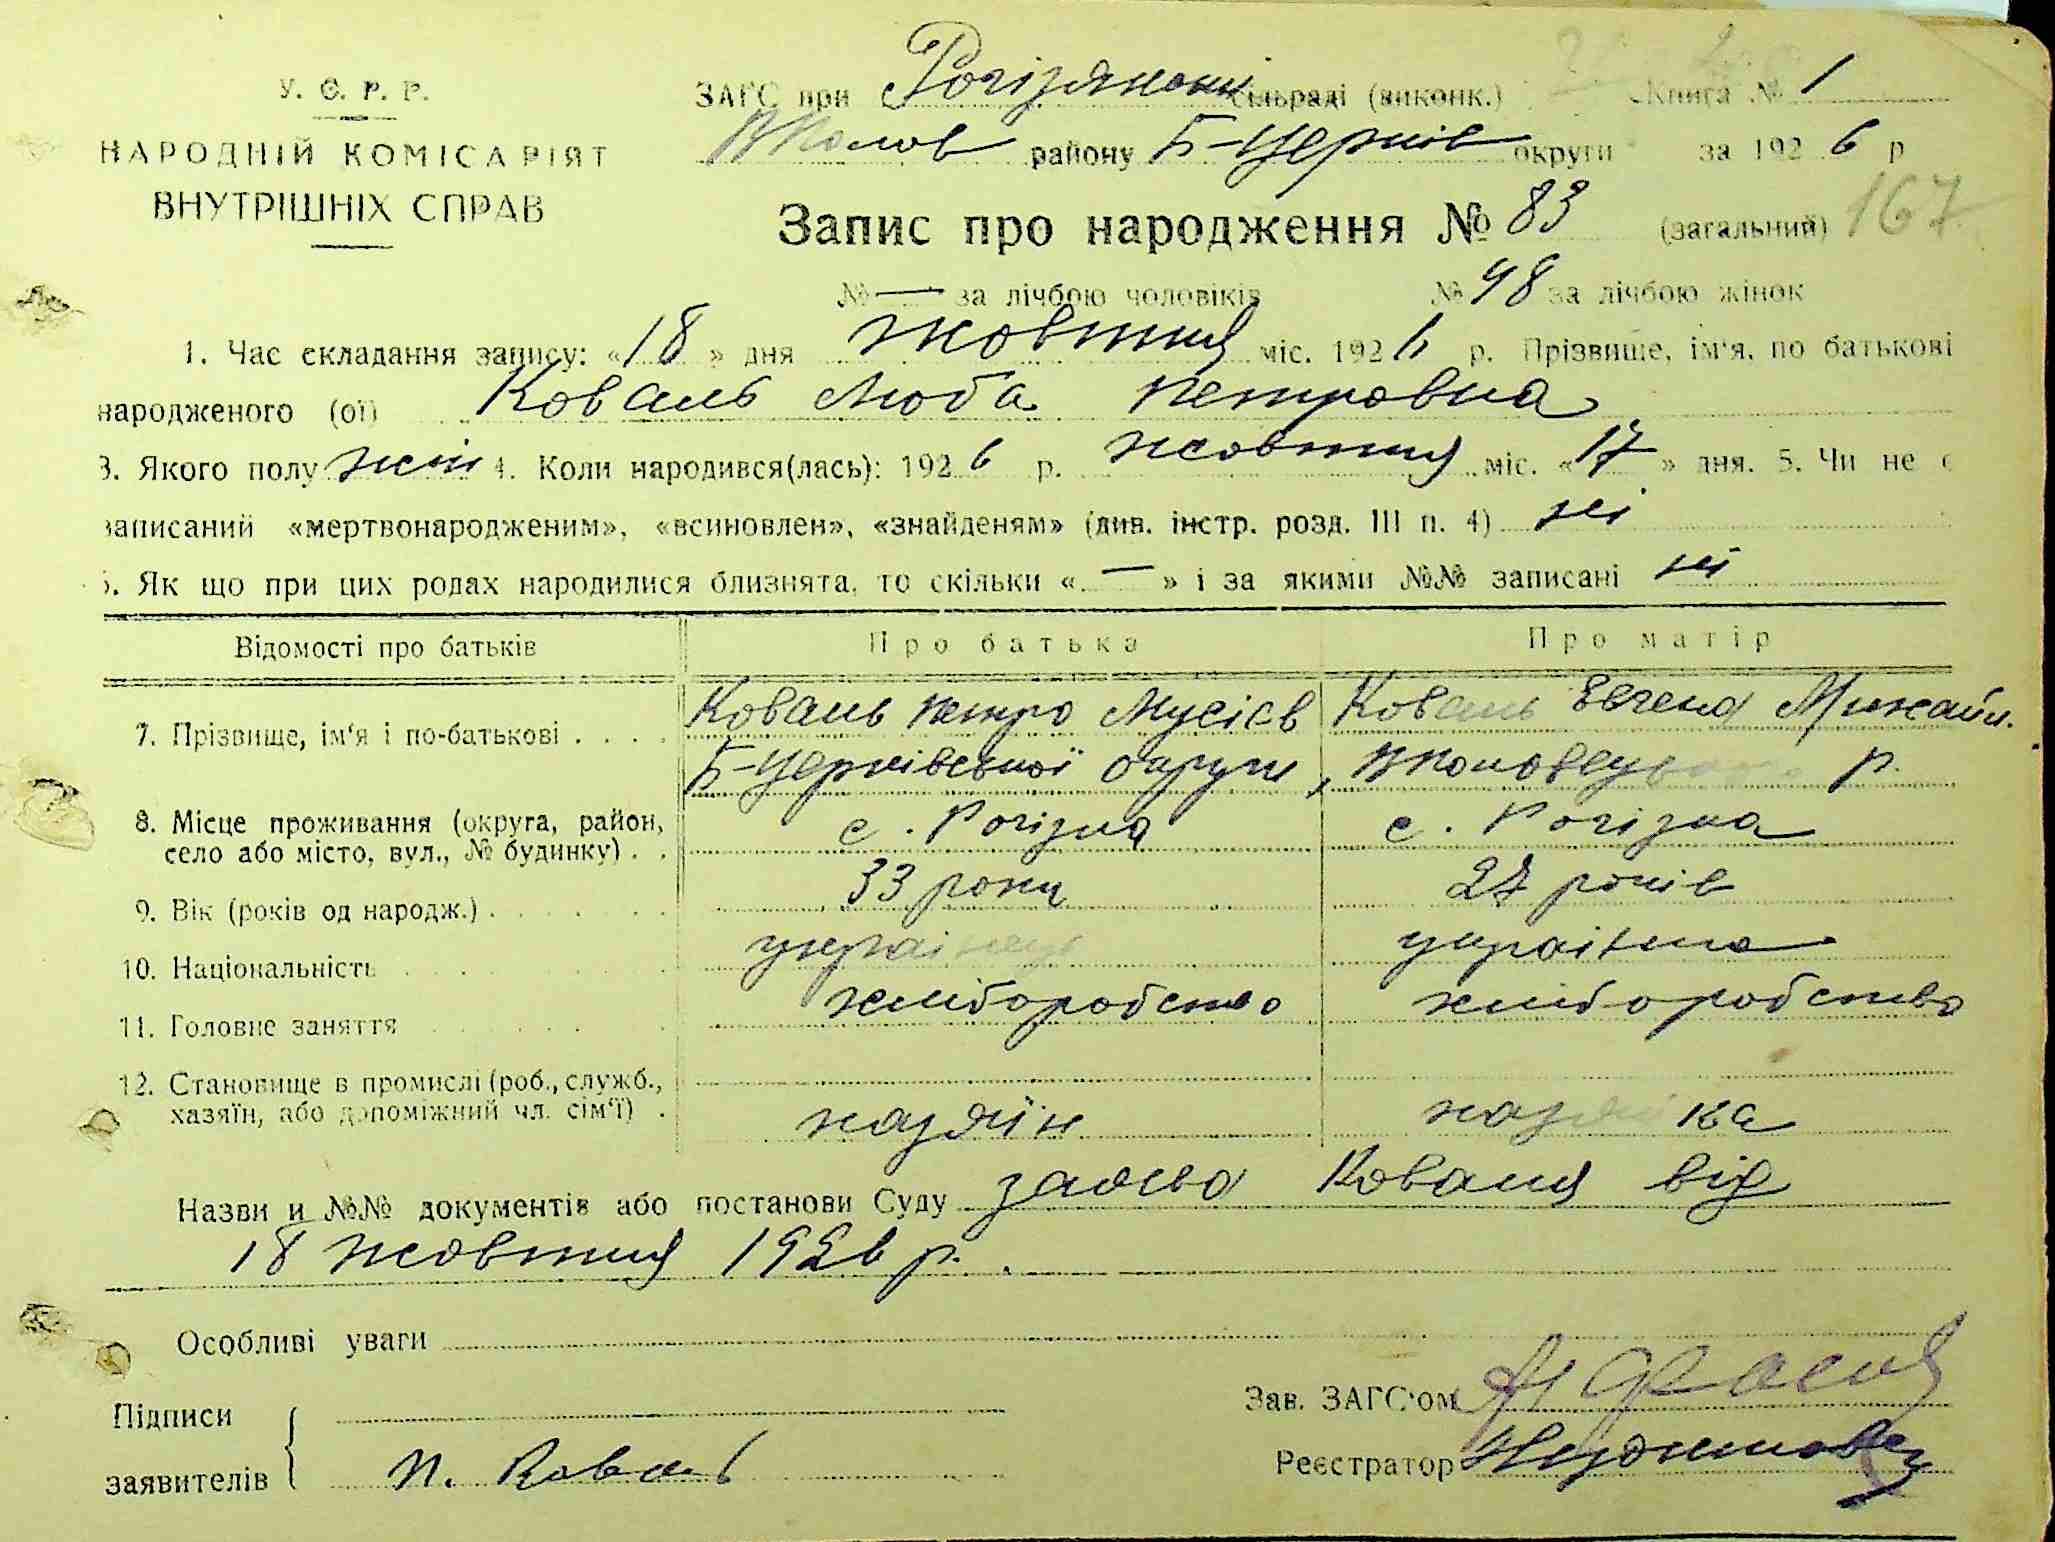 У. С. Р. Р.
НАРОДНІЙ КОМІСАРІЯТ
ВНУТРІШНІХ СПРАВ
ЗАГС при Рогізянскій сільраді (виконк.) Книга № 1
району Б-Церків округи за 1926 р
Запис про народження № 83 (загальний) 167
№ — за лічбою чоловіків № 48 за лічбою жінок
1. Час складання запису: «18» дня жовтня міс. 1926 р. Прізвище, ім'я, по батькові
народженого (ої) Коваль Люба Петровна
3. Якого полу жін 4. Коли народився(лась): 1926 р. жовтня міс. «17» дня. 5. Чи не є
записаний «мертвонародженим», «всиновлен», «знайденям» (див. інстр. розд. III п. 4) ні
6. Як що при цих родах народилися близнята, то скільки « — » і за якими №№ записані ні
Відомості про батьків Про батька Про матір
7. Прізвище, ім'я і по-батькові . . . . Коваль Петро Мусієв Коваль Евгена Михайл.
Б-Церківської округи, р.
8. Місце проживання (округа, район,
село або місто, вул., № будинку) . . с. Рогізна с. Рогізна
9. Вік (років од народж.) . . . . . . . 33 роки 27 років
10. Національність українець українка
11. Головне заняття хліборобство хліборобство
12. Становище в промислі (роб., служб.,
хазяїн, або допоміжний чл. сім'ї) . хазяїн хазяйка
Назви и №№ документів або постанови Суду заява Коваля від
18 жовтня 1926 р.
Особливі уваги
Підписи
заявителів П. Коваль
Зав. ЗАГС'ом
Реєстратор